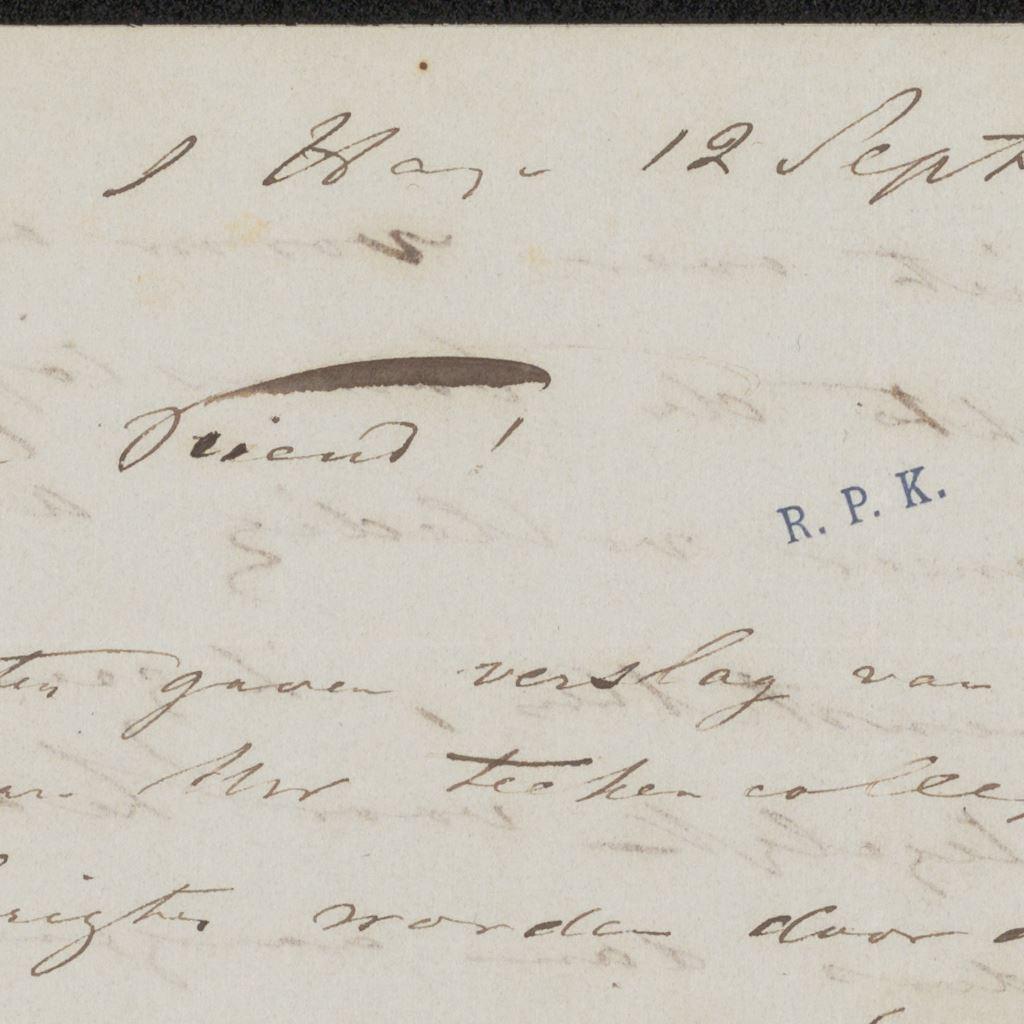 s Hage 12 Sept
Vriend!
R. P. K.
gaven verslag van
Uw teekencolleg
worden door